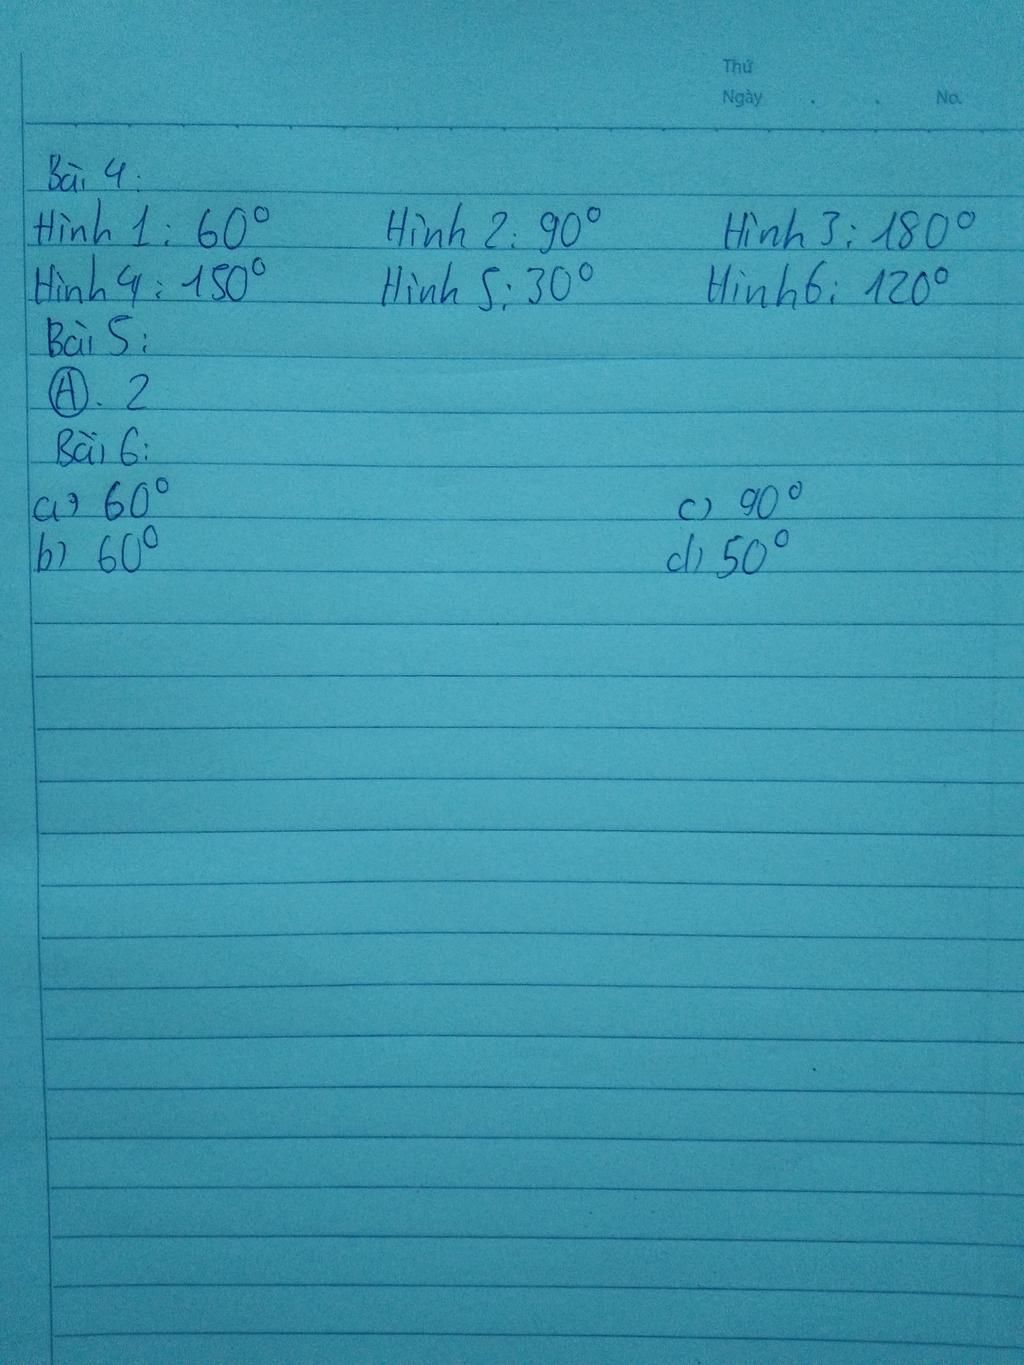 Thứ
Ngày . . No.
Bài 4:
Hình 1: 60° Hình 2: 90° Hình 3: 180°
Hình 4: 150° Hình 5: 30° Hình 6: 120°
Bài 5:
A. 2
Bài 6:
a) 60° c) 90°
b) 60° d) 50°